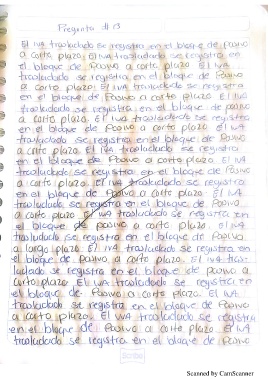 Pregunta # 3
El IVA trasladado se registra en el bloque de Pasivo
a corto plazo. El IVA trasladado se registra en
el bloque de Pasivo a corto plazo. El IVA
trasladado se registra en el bloque de Pasivo
a corto plazo. El IVA trasladado se registra en
el bloque de Pasivo a corto plazo. El IVA
trasladado se registra en el bloque de pasivo
a corto plazo. El IVA trasladado se registra
en el bloque de Pasivo a corto plazo. El IVA
trasladado se registra en el bloque de Pasivo
a corto plazo. El IVA trasladado se registra en
el bloque de Pasivo a corto plazo. El IVA
trasladado se registra en el bloque de Pasivo
a corto plazo. El IVA trasladado se registra
en el bloque de Pasivo a corto plazo. El IVA
trasladado se registra en el bloque de Pasivo
a corto plazo. El IVA trasladado se registra en
el bloque de Pasivo a corto plazo. El IVA
trasladado se registra en el bloque de Pasivo
a corto plazo. El IVA trasladado se registra en
el bloque de Pasivo a corto plazo. El IVA tras-
ladado se registra en el bloque de Pasivo a
corto plazo. El IVA trasladado se registra en
el bloque de Pasivo a corto plazo. El IVA
trasladado se registra en el bloque de Pasivo
a corto plazo. El IVA trasladado se registra
en el bloque de Pasivo a corto plazo. El IVA
trasladado se registra en el bloque de Pasivo
Scribe
Scanned by CamScanner